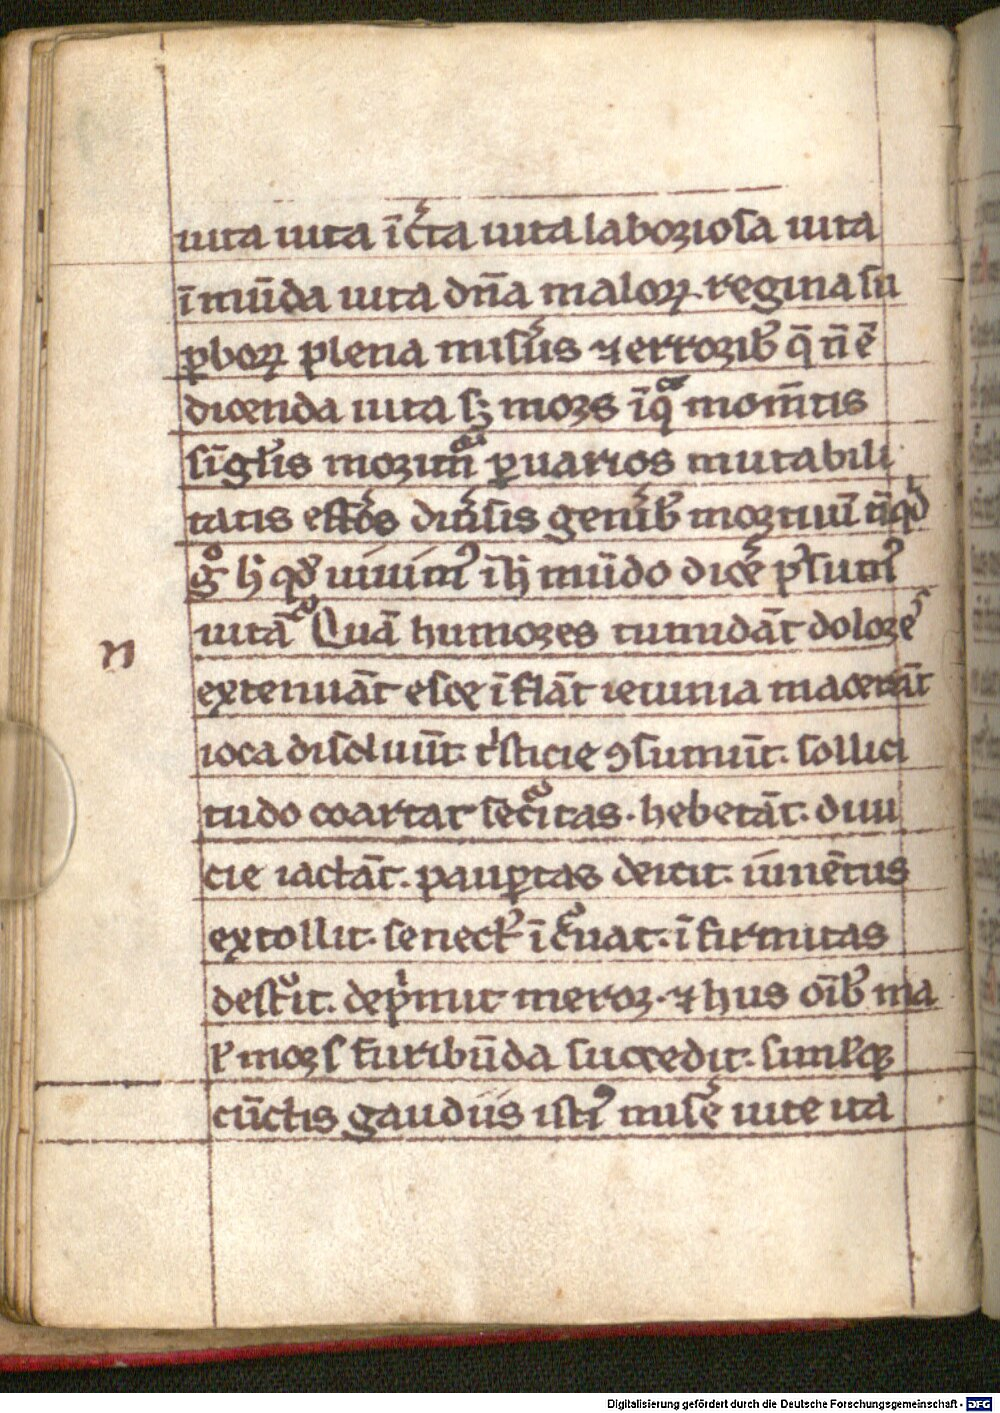 uita uita īc̄ta uita laboriosa uita
īmūda uita dn̄a maloꝝ regina su
ꝑboꝝ plena misīis ⁊ erroribꝰ q̄ n̄ ē
dicenda uita sꝫ mors īq̄ momētis
sīgłis morimur ꝑ uarios mutabili
tatis
gͦ h̄ qd̓ uiuimꝰ ī h̄ mūdo dicē
uitā Quā humores tumidāt dolore᷒
n
extenuāt esce īflāt ieiunia macerāt
ioca disoluūt. tͥsticie ꝯsumūt. sollici
tudo coartat secᵘitas. hebetāt. diui
cie iactāt. pauꝑtas deicit. iuuētus
extollit. senectꝰ īcᵘuat. īfirmitas
destᵘit. depͥmit meror. ⁊ hiis oībꝰ ma
ł mors furibūda succedit. simłqꝫ
cūctis gaudiis istiꝰ misē uite ita
Digitalisierung gefördert durch die Deutsche Forschungsgemeinschaft - DFG